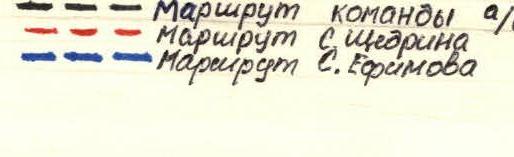 Маршрут команды а/
Маршрут С. Щедрина
Маршрут С. Ефимова